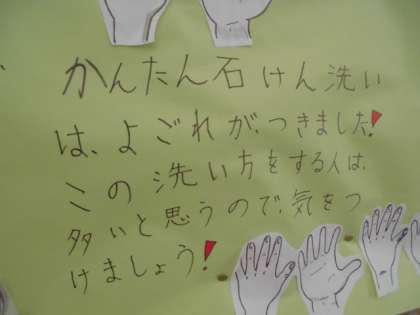 かんたん石けん洗い
は、よごれが、つきました!
この洗い方をする人は、
多いと思うので、気をつ
けましょう!